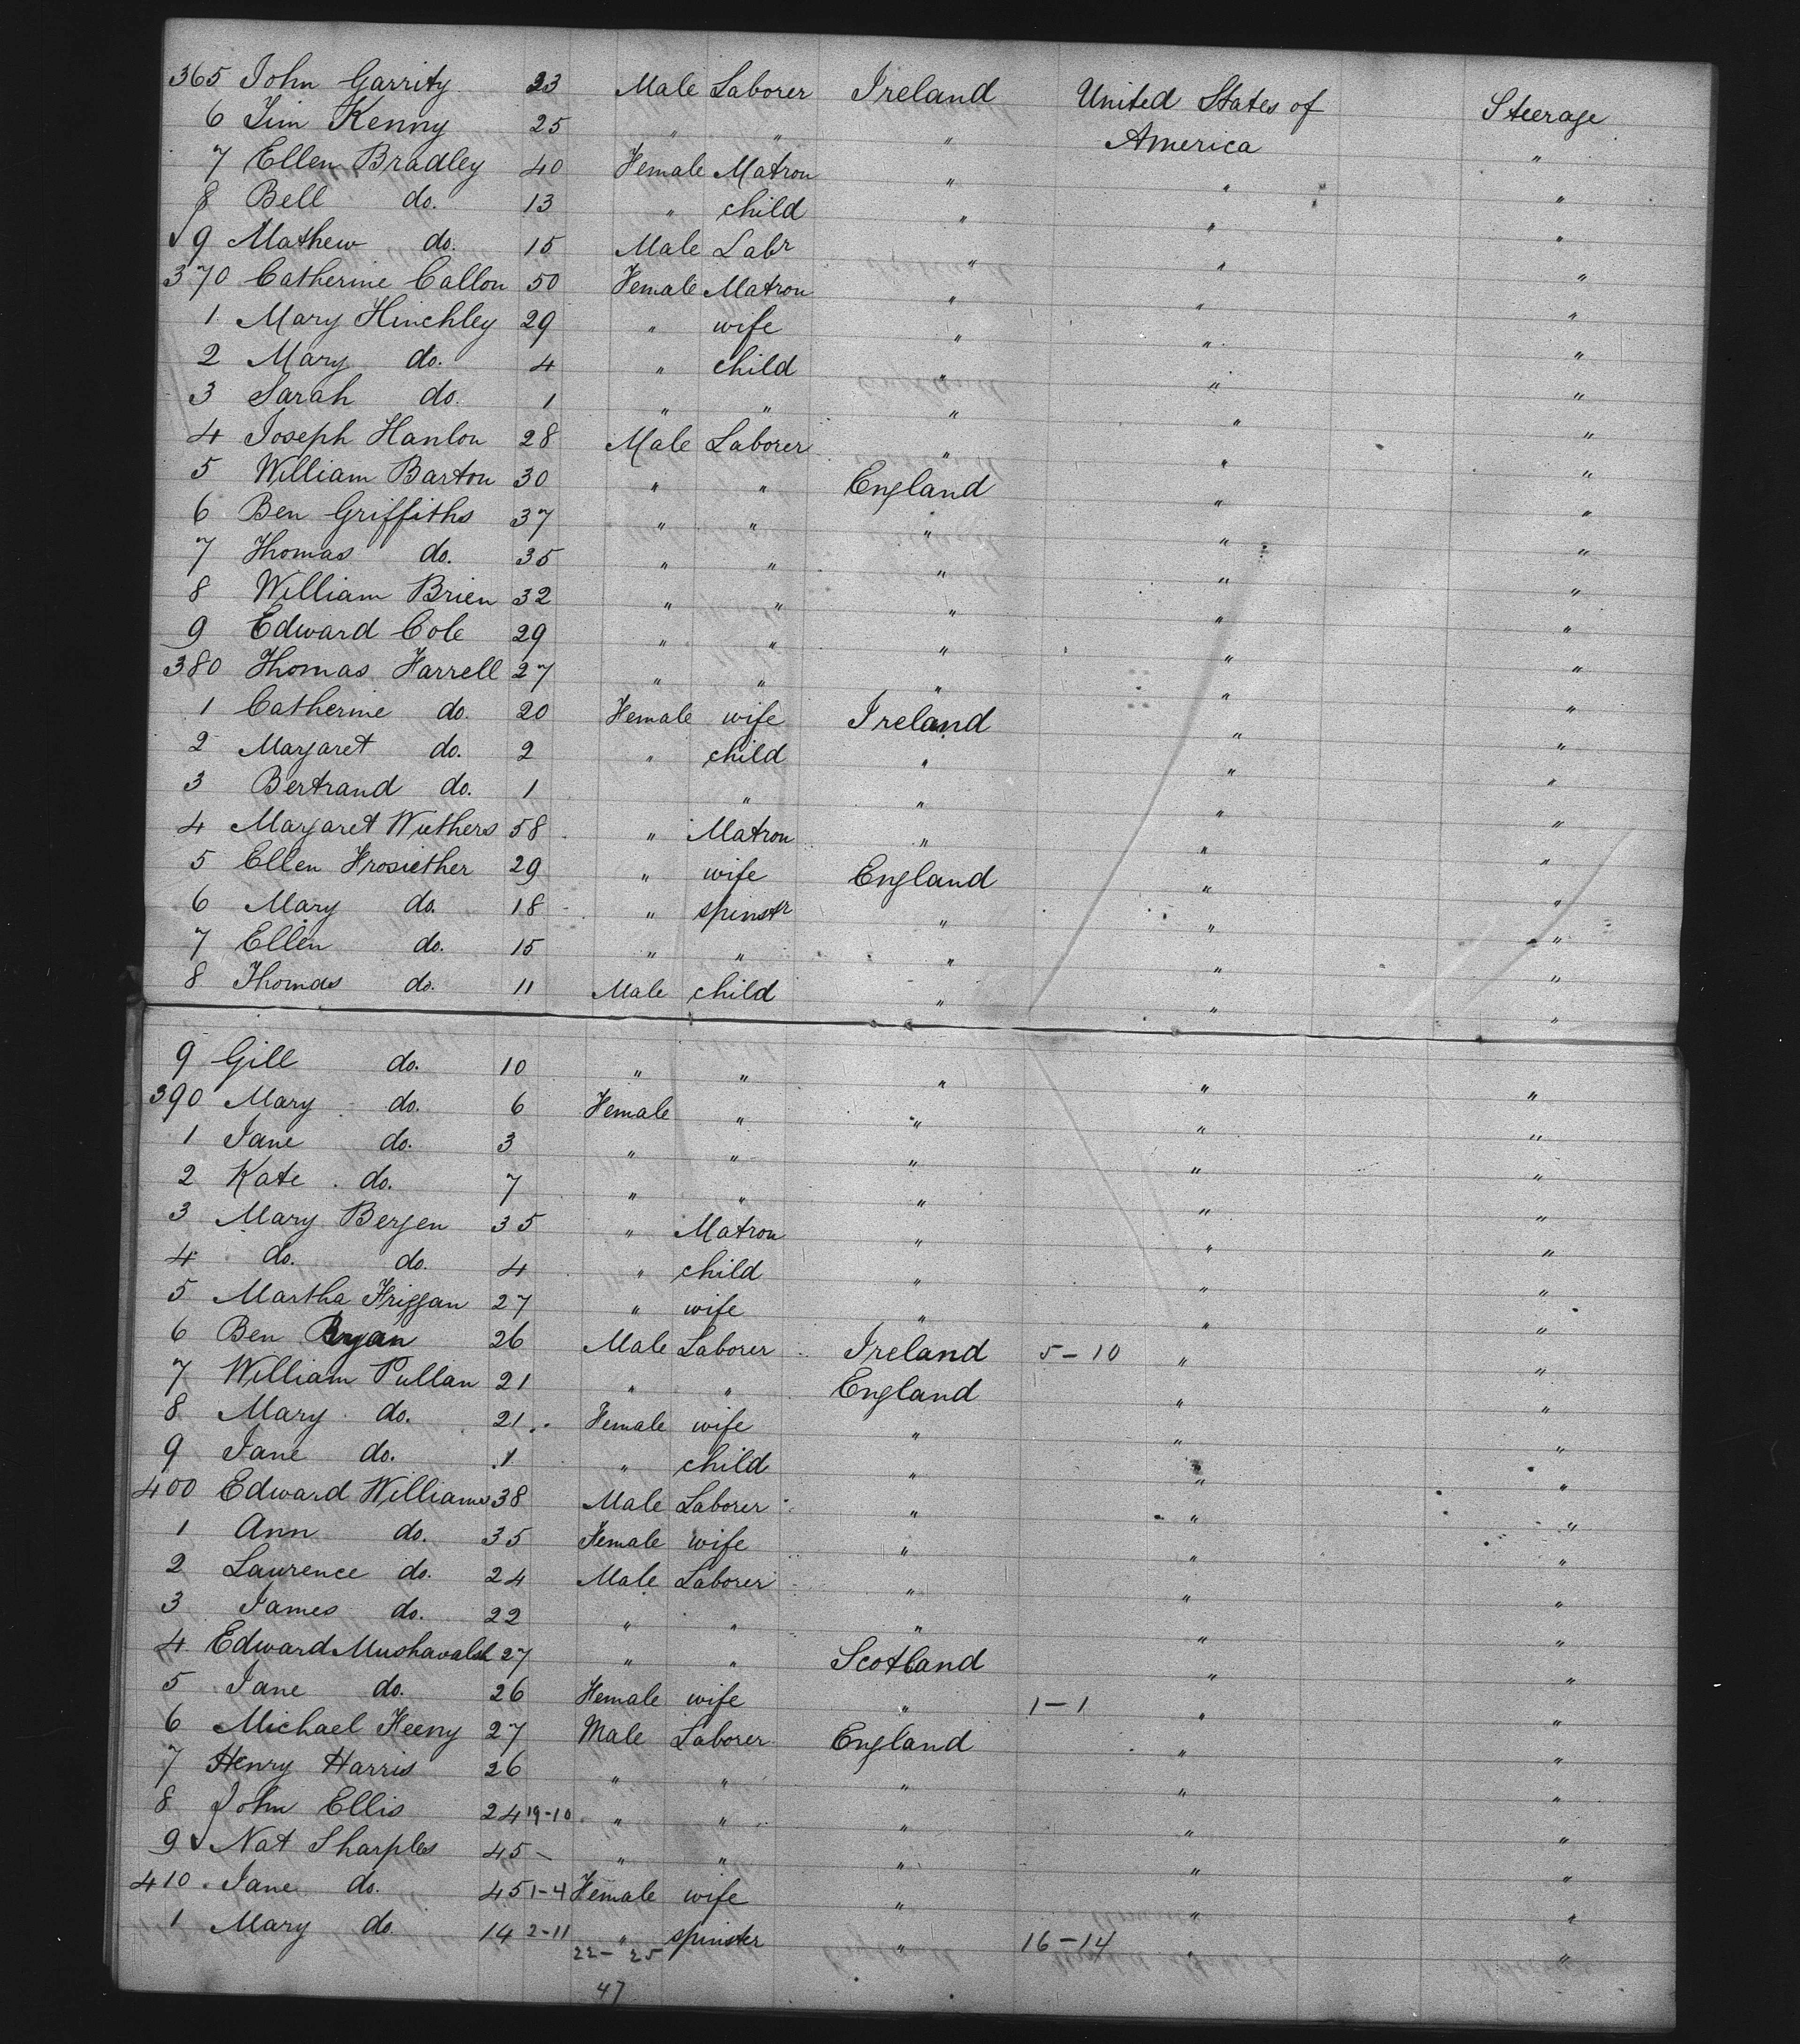 365 John Garrity 23 Male Laborer Ireland United States of Steerage
6 Jim Kenny 25 " " " America "
7 Ellen Bradley 40 Female Matron " " "
8 Bell do. 13 " child " " "
✓ 9 Mathew do. 15 Male Labr " " "
370 Catherine Callon 50 Female Matron " " "
1 Mary Hinchley 29 " wife " " "
2 Mary do. 4 " child " " "
3 Sarah do. 1 " " " " "
4 Joseph Hanlon 28 Male Laborer " " "
5 William Barton 30 " " England " "
6 Ben Griffiths 37 " " " " "
7 Thomas do. 35 " " " " "
8 William Brien 32 " " " " "
9 Edward Cole 29 " " " " "
380 Thomas Farrell 27 " " " " "
1 Catherine do. 20 Female wife Ireland " "
2 Margaret do. 2 " child " " "
3 Bertrand do. 1 " " " "
4 Margaret Wuthers 58 " Matron " " "
5 Ellen Frosiether 29 " wife England " "
6 Mary do. 18 " spinstr " " "
7 Ellen do. 15 " " " " "
8 Thomas do. 11 Male child " " "
9 Gill do. 10 " " " " "
390 Mary do. 6 Female " " " "
1 Jane do. 3 " " " " "
2 Kate do. 7 " " " " "
3 Mary Bergen 35 " Matron " " "
4 do. do. 4 " child " " "
5 Martha Friggan 27 " wife " " "
6 Ben Ryan 26 Male Laborer Ireland 5-10 " "
7 William Pullan 21 " " England " "
8 Mary do. 21 Female wife " " "
9 Jane do. 1 " child " " "
400 Edward Williams 38 Male Laborer " " "
1 Ann do. 35 Female wife " " "
2 Laurence do. 24 Male Laborer " " "
3 James do. 22 " " " " "
4 Edward Mushavalsh 27 " " Scotland " "
5 Jane do. 26 Female wife " 1-1 " "
6 Michael Feeny 27 Male Laborer England " "
7 Henry Harris 26 " " " " "
8 John Ellis 24 19-10 " " " " "
9 ✓ Nat Sharples 45 - " " " " "
410 Jane do. 45 1-4 Female wife " " "
1 Mary do. 14 2-11 " spinster " 16-14 " "
22-25
47